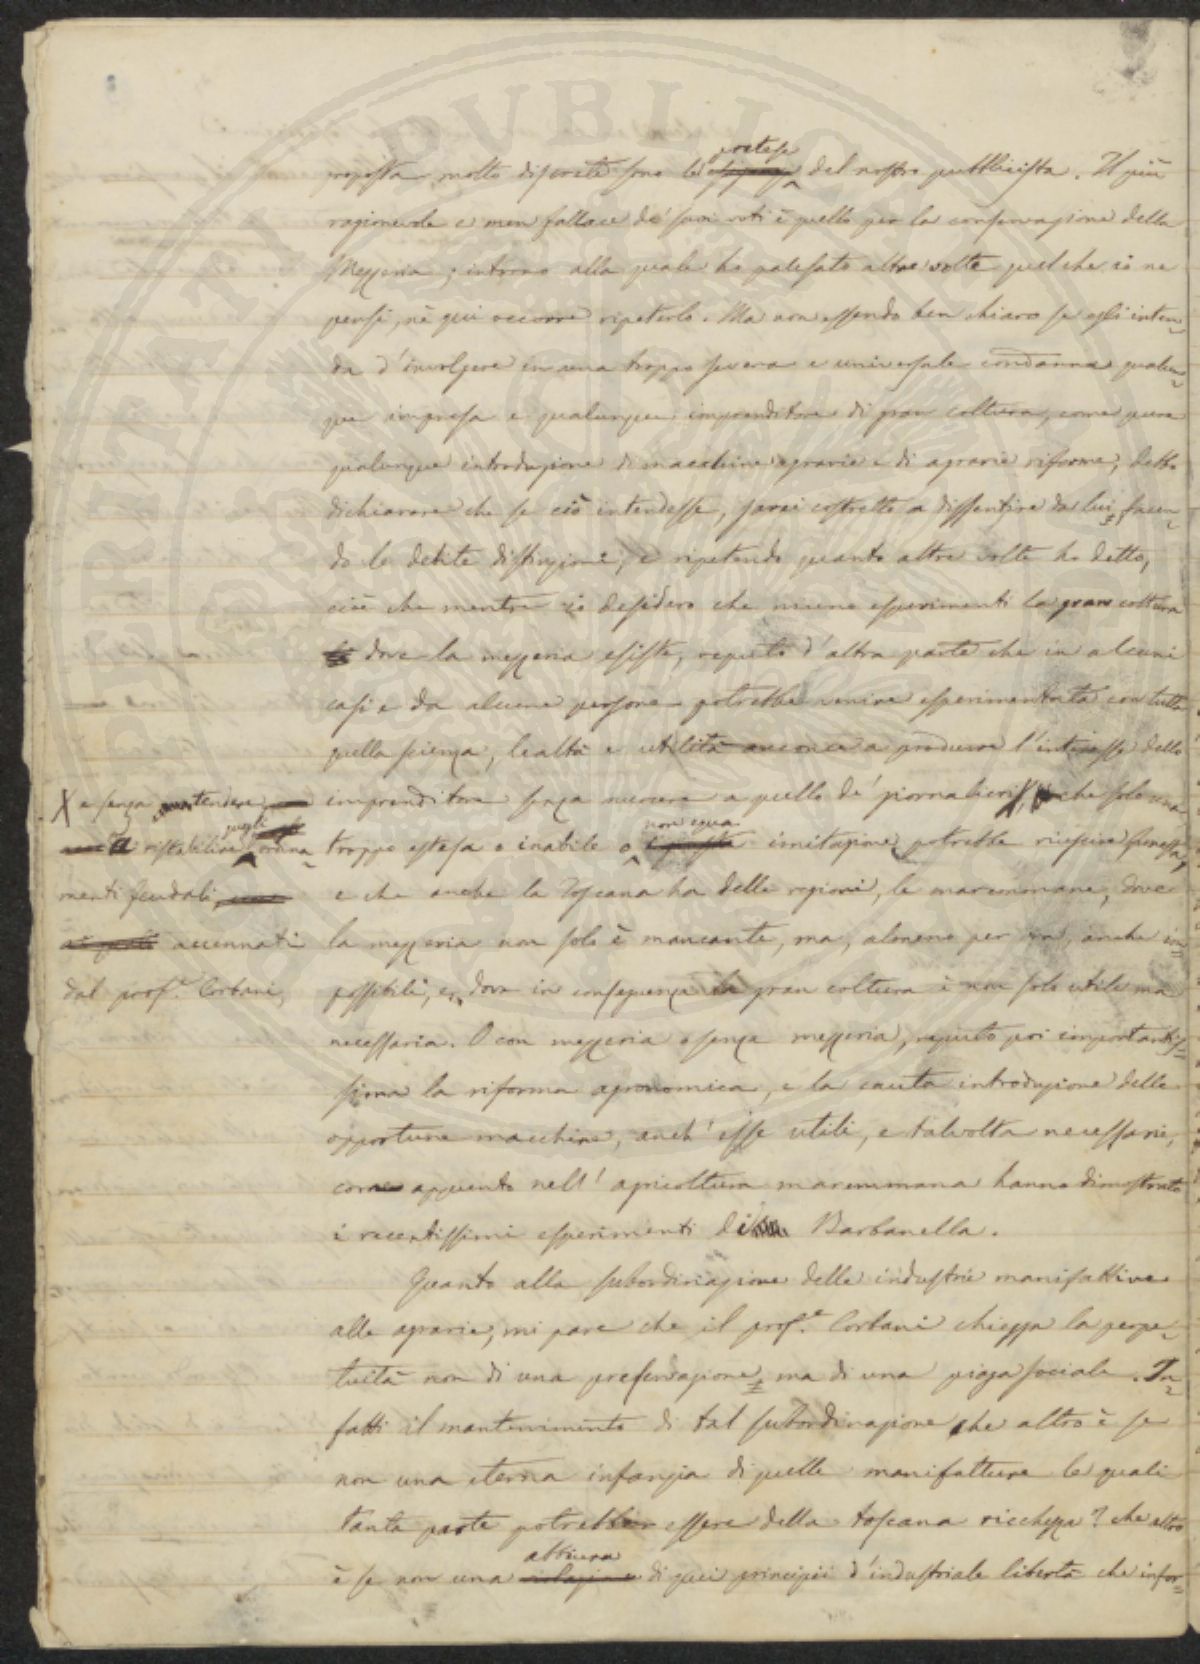 PERITATI PUBLICAE
pretese
proposta molto discrete sono le del nostro pubblicista. Il più
ragionevole e men fallace de' suoi voti è quello per la conservazione della
Mezzeria; intorno alla quale ho palesato altre volte quel che io ne
pensi, nè qui occorre ripeterlo. Ma non essendo ben chiaro se egli inten=
da d'involgere in una troppo severa e universale condanna qualun=
que impresa e qualunque imprenditore di gran coltura, come pure
qualunque introduzione di macchine agrarie e di agrarie riforme, debbo
dichiarare che se ciò intendesse, sarei costretto a dissentire da lui, facen=
do le debite distinzioni, e ripetendo quanto altre volte ho detto,
cioè che mentre io desidero che niuno esperimenti la gran coltura
dove la mezzeria esiste, reputo d'altra parte che in alcuni
casi e da alcune persone potrebbe venire esperimentata con tutta
quella scienza, lealtà e utilità che conce a produrre l'interesse dello
X e senza pretendere
imprenditore senza nuocere a quello de' giornalieri, X che solo una
a ristabilire quegli ordina=
troppo estesa o inabile o non equa imitazione potrebbe riuscire funesta,
menti feudali,
e che anche la Toscana ha delle regioni, le maremmane, dove
accennati
la mezzeria non solo è mancante, ma, almeno per ora, anche im=
dal prof.e Corbani,
possibile, e dove in conseguenza la gran coltura è non solo utile ma
necessaria. O con mezzeria o senza mezzeria, reputo poi importantis=
sima la riforma agronomica, e la cauta introduzione delle
opportune macchine, anch'esse utili, e talvolta necessarie,
come appunto nell'agricoltura maremmana hanno dimostrato
i recentissimi esperimenti di Barbanella.
Quanto alla subordinazione delle industrie manifattive
alle agrarie, mi pare che il prof.e Corbani chiegga la perpe=
tuità non di una preservazione, ma di una piaga sociale. In=
fatti il mantenimento di tal subordinazione che altro è se
non una eterna infanzia di quelle manifatture le quali
tanta parte potrebber essere della toscana ricchezza? che altro
abbiura
è se non una di quei principii d'industriale libertà che infor=